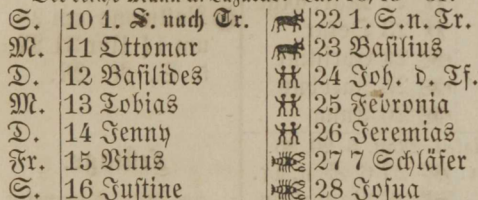 S. 10 1. S. nach Tr. 22 1. S. n. Tr.
M. 11 Ottomar 23 Basilius
D. 12 Basilides 24 Joh. d. Tf.
M. 13 Tobias 25 Febronia
D. 14 Jenny 26 Jeremias
Fr. 15 Vitus 27 7 Schläfer
S. 16 Justine 28 Josua